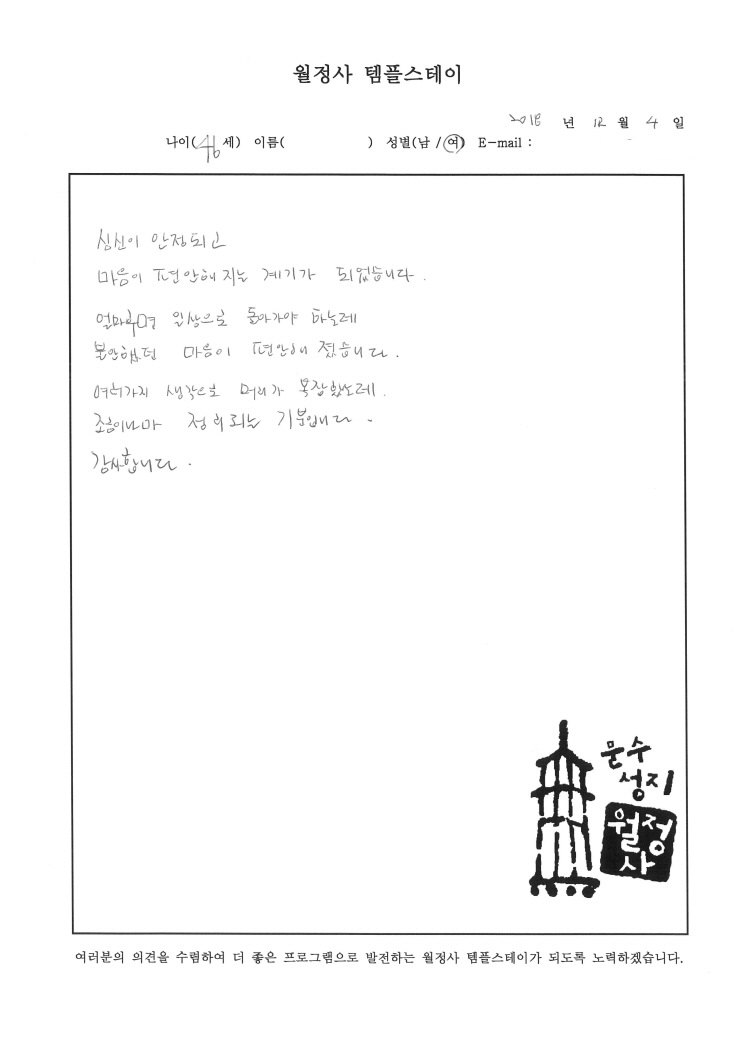 월정사 템플스테이
2018 년 12 월 4 일
나이(46 세) 이름( ) 성별(남 / 여) E-mail :
심신이 안정되고
마음이 편안해지는 계기가 되었습니다.
얼마후면 일상으로 돌아가야 하는데
불안했던 마음이 편안해 졌습니다.
여러가지 생각으로 머리가 복잡했는데.
조금이나마 정리되는 기분입니다.
감사합니다.
문수
성지
월정
사
여러분의 의견을 수렴하여 더 좋은 프로그램으로 발전하는 월정사 템플스테이가 되도록 노력하겠습니다.